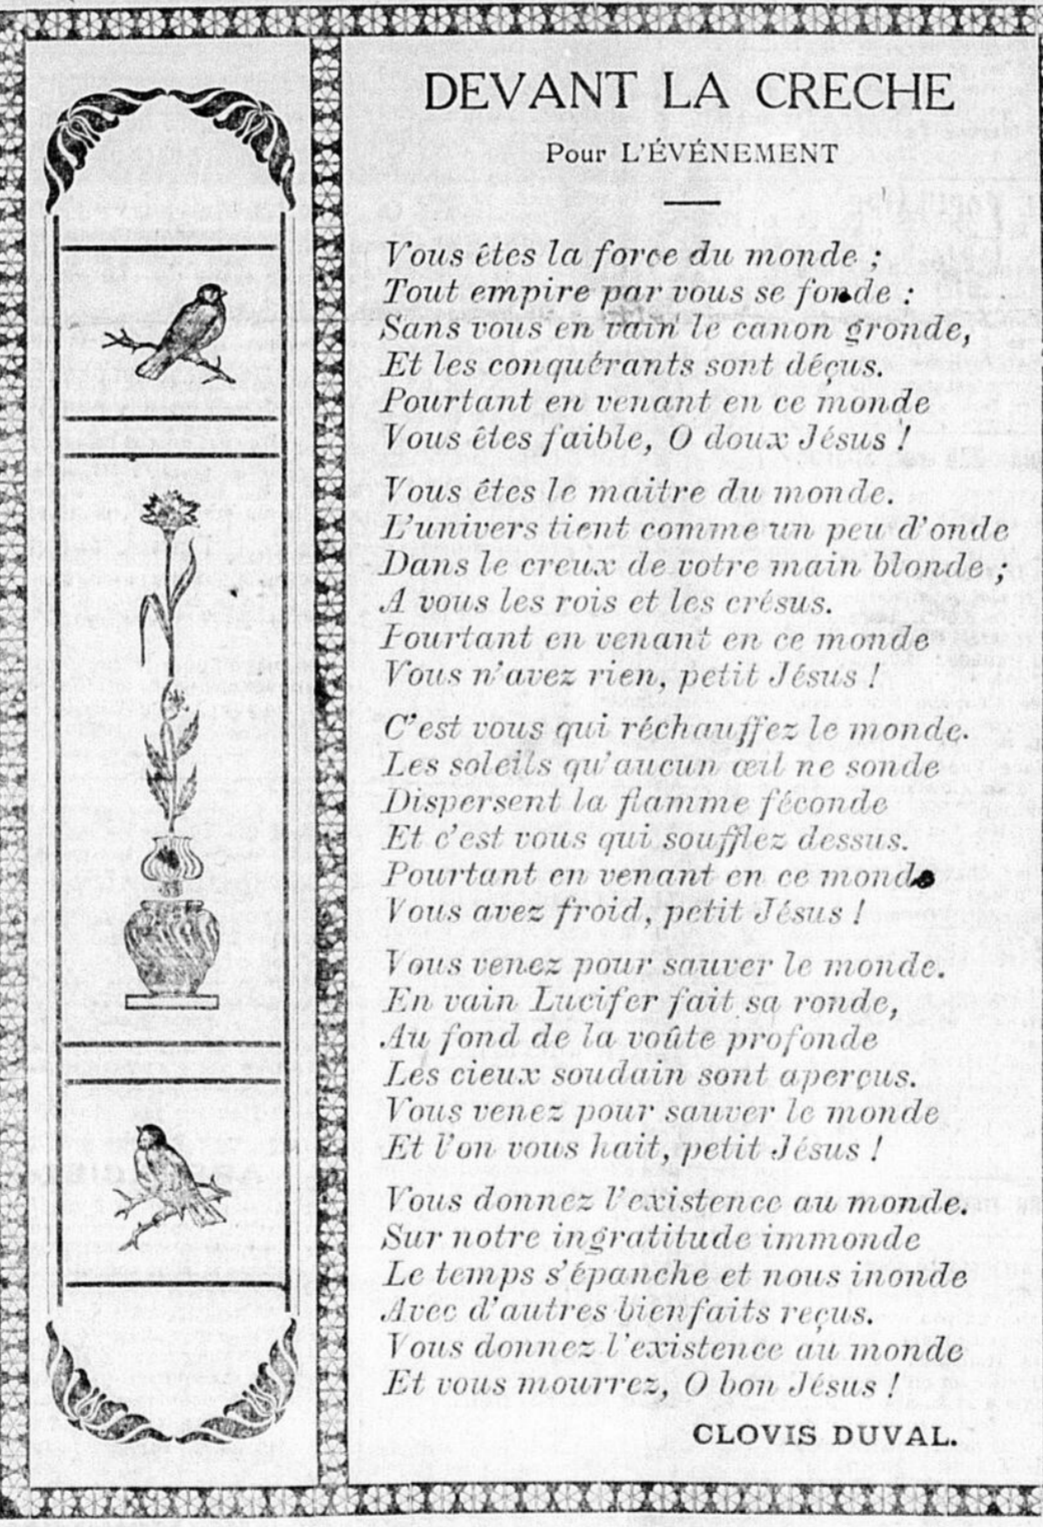 DEVANT LA CRECHE
Pour L'ÉVÉNEMENT
Vous êtes la force du monde ;
Tout empire par vous se fonde :
Sans vous en vain le canon gronde,
Et les conquérants sont déçus.
Pourtant en venant en ce monde
Vous êtes faible, O doux Jésus !
Vous êtes le maitre du monde.
L'univers tient comme un peu d'onde
Dans le creux de votre main blonde ;
A vous les rois et les crésus.
Pourtant en venant en ce monde
Vous n'avez rien, petit Jésus !
C'est vous qui réchauffez le monde.
Les soleils qu'aucun œil ne sonde
Dispersent la flamme féconde
Et c'est vous qui soufflez dessus.
Pourtant en venant en ce monde
Vous avez froid, petit Jésus !
Vous venez pour sauver le monde.
En vain Lucifer fait sa ronde,
Au fond de la voûte profonde
Les cieux soudain sont aperçus.
Vous venez pour sauver le monde
Et l'on vous hait, petit Jésus !
Vous donnez l'existence au monde.
Sur notre ingratitude immonde
Le temps s'épanche et nous inonde
Avec d'autres bienfaits reçus.
Vous donnez l'existence au monde
Et vous mourrez, O bon Jésus !
CLOVIS DUVAL.